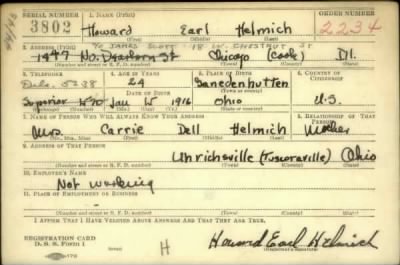 SERIAL NUMBER 1. NAME (Print) ORDER NUMBER
3802 Howard Earl Helmich 2234
(First) (Middle) (Last)
2. ADDRESS (Print) % JAMES SCOTT 18 W. CHESTNUT ST
1447 No. Dearborn St Chicago (Cook) Ill.
(Number and street or R. F. D. number) (Town) (County) (State)
3. TELEPHONE 4. AGE IN YEARS 5. PLACE OF BIRTH 6. COUNTRY OF CITIZENSHIP
Dela. 5238 24 Gnadenhutten
DATE OF BIRTH
Superior Jan 1916 Ohio U.S.
7. NAME OF PERSON WHO WILL ALWAYS KNOW YOUR ADDRESS 8. RELATIONSHIP OF THAT PERSON
Mrs. Carrie Dell Helmich Mother
(Mr., Mrs., Miss) (First) (Middle) (Last)
9. ADDRESS OF THAT PERSON
Uhrichsville (Tuscoraville) Ohio
(Number and street or R. F. D. number) (Town) (County) (State)
10. EMPLOYER'S NAME
Not working
11. PLACE OF EMPLOYMENT OR BUSINESS
(Number and street or R. F. D. number) (Town) (County) (State)
I AFFIRM THAT I HAVE VERIFIED ABOVE ANSWERS AND THAT THEY ARE TRUE.
REGISTRATION CARD
D. S. S. Form 1
H Howard Earl Helmich
(Registrant's signature)